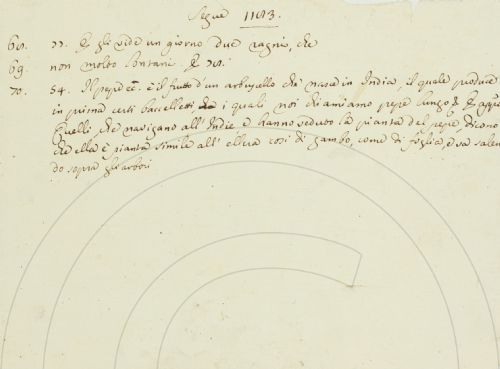 Segue 1183.
68. 77. E gli vide un giorno due ragni, che
69. non molto lontani E 78.
70. 54. Il pepe è il frutto d'un arbuscello che nasce in India, il quale produce
in prima certi baccelletti i quali noi chiamiamo pepe lungo &
Quelli che navigano all'Indie e hanno veduto la pianta del pepe, dicono
che ella è pianta simile all' così di gambo, come di foglia, e va salen
do sopra gli arbori